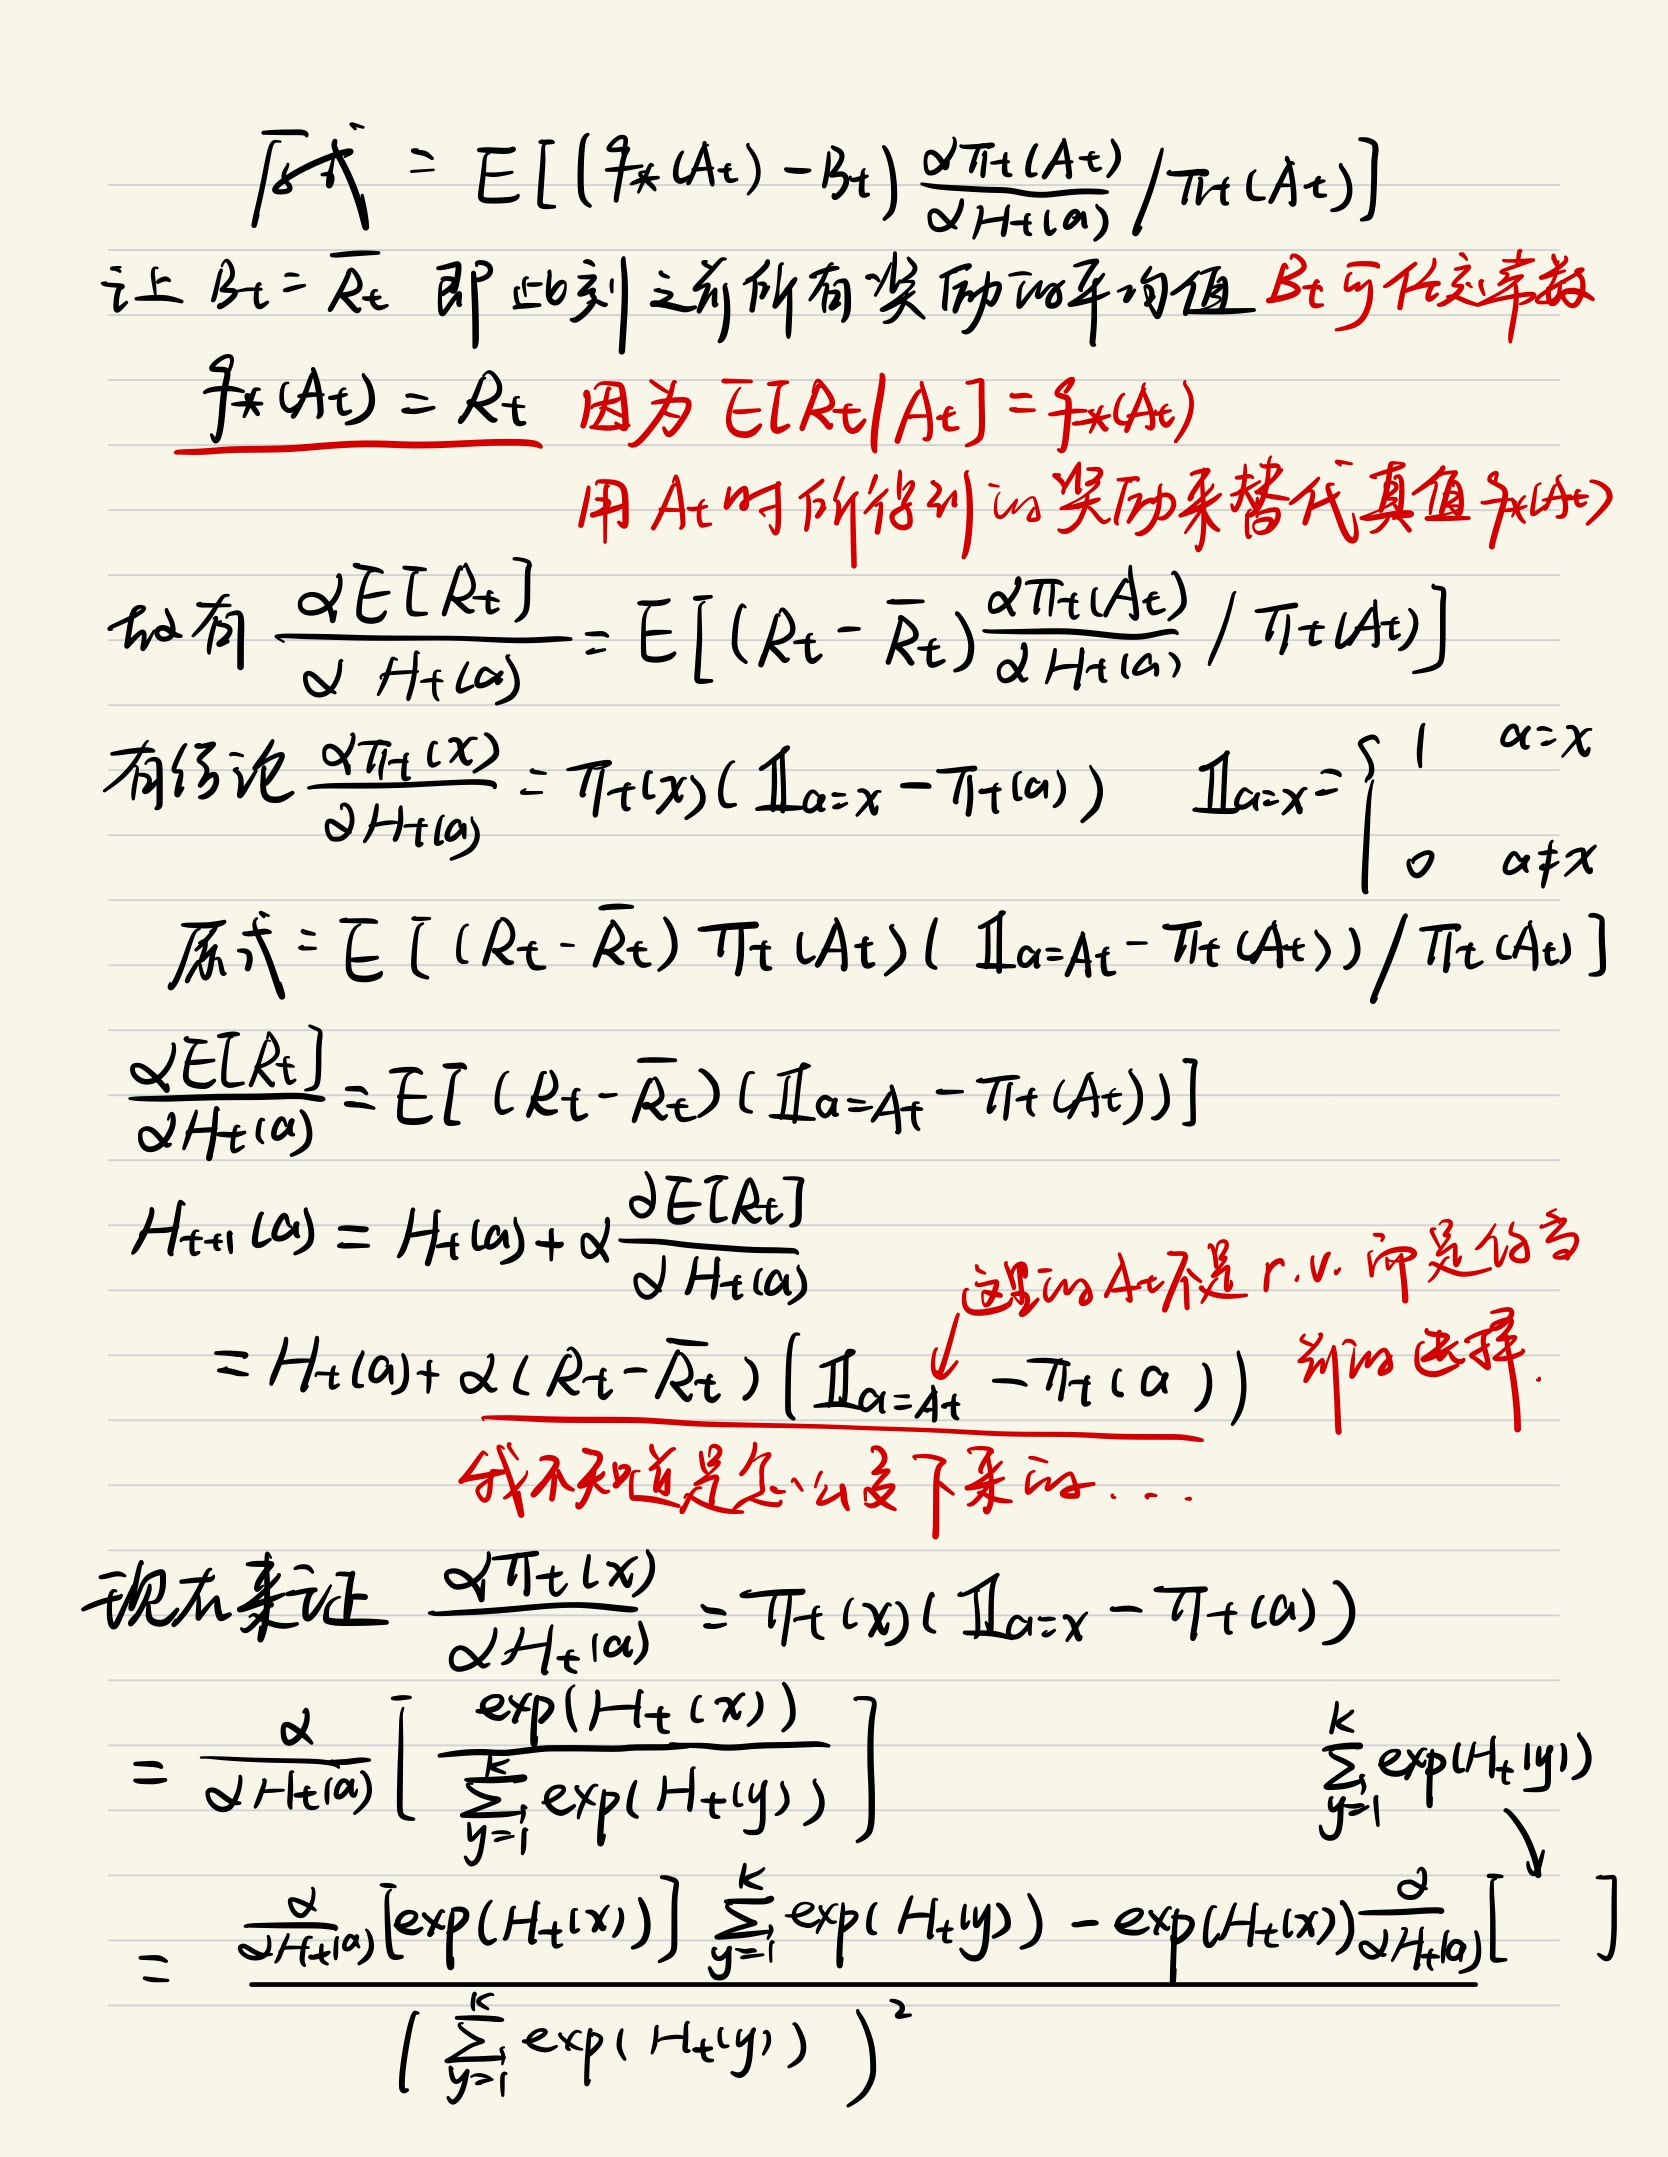 原式 = E[(q*(At) - Bt) ∂πt(At)/∂Ht(a) / πt(At)]
让 Bt = R̄t 即此刻之前所有奖励的平均值 Bt可任意常数
q*(At) = Rt 因为 E[Rt|At] = q*(At)
用At时所得到的奖励来替代真值q*(At)
故有 ∂E[Rt]/∂Ht(a) = E[(Rt - R̄t) ∂πt(At)/∂Ht(a) / πt(At)]
有结论 ∂πt(x)/∂Ht(a) = πt(x)(𝟙a=x - πt(a)) 𝟙a=x = { 1 a=x
0 a≠x
原式 = E[(Rt - R̄t) πt(At)(𝟙a=At - πt(At)) / πt(At)]
∂E[Rt]/∂Ht(a) = E[(Rt - R̄t)(𝟙a=At - πt(At))]
Ht+1(a) = Ht(a) + α ∂E[Rt]/∂Ht(a)
这里的At不是r.v. 而是你当
前的选择.
= Ht(a) + α(Rt - R̄t)(𝟙a=At - πt(a))
我不知道是怎么变下来的...
现在来证 ∂πt(x)/∂Ht(a) = πt(x)(𝟙a=x - πt(a))
= ∂/∂Ht(a) [exp(Ht(x)) / Σ_{y=1}^{k} exp(Ht(y))]
Σ_{y=1}^{k} exp(Ht(y))
= (∂/∂Ht(a) [exp(Ht(x))] Σ_{y=1}^{k} exp(Ht(y)) - exp(Ht(x)) ∂/∂Ht(a) [ ]) / (Σ_{y=1}^{k} exp(Ht(y)))²